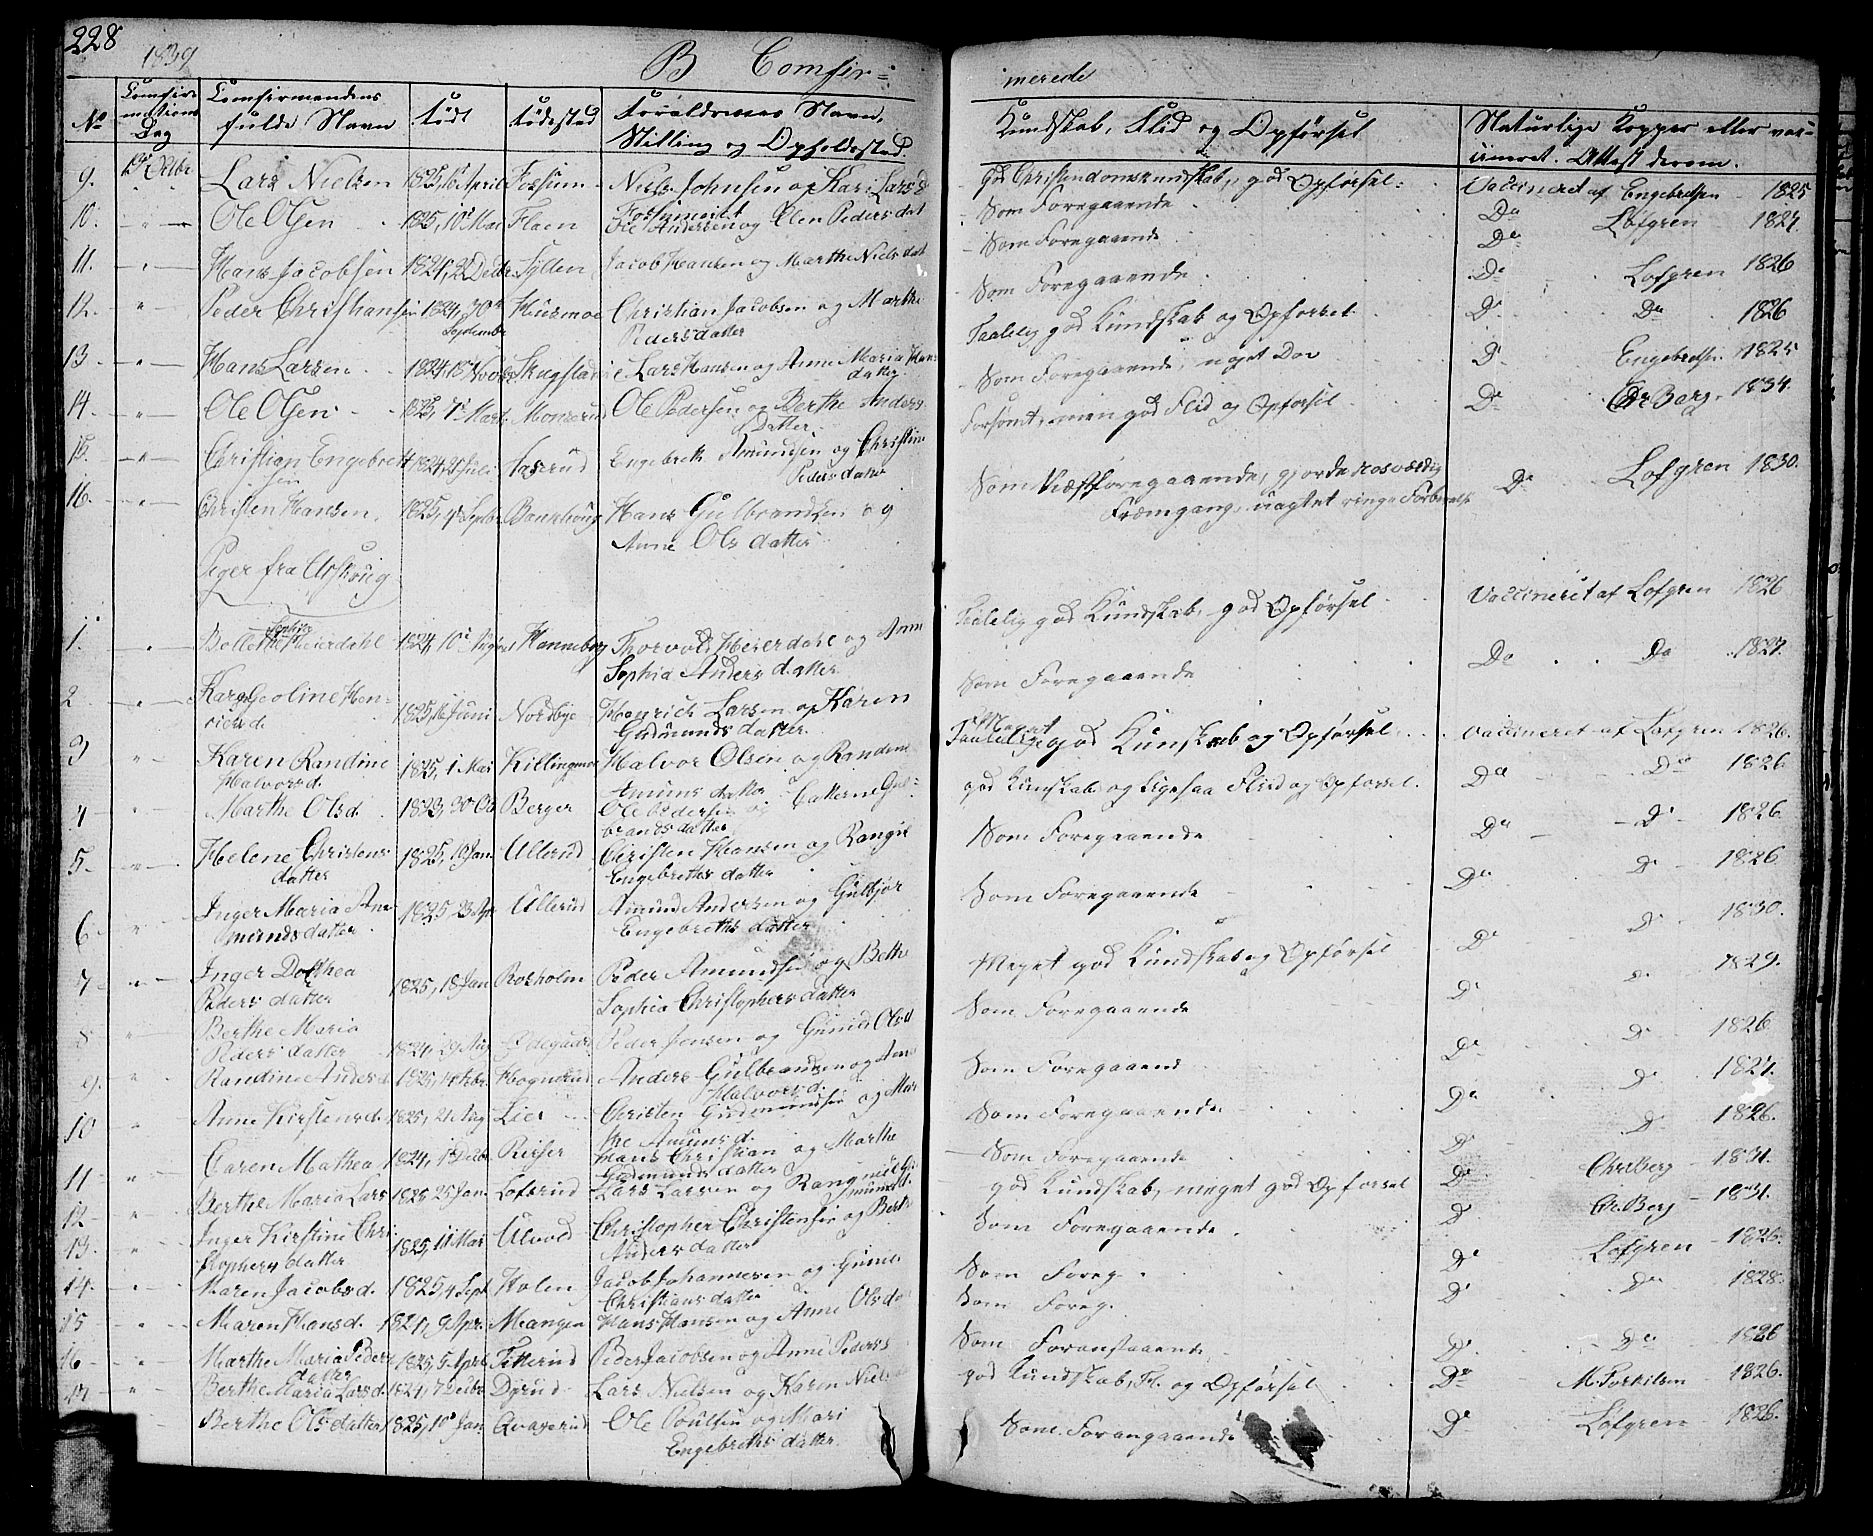 228
1839
B Comfir=
merede
No
Comfir-
mations
Dag
Comfirmandens
fulde Navn
Født
Fødested
Forældrenes Navn,
Stilling og Opholdssted.
Kundskab, Flid og Opførsel
Naturlige Kopper eller vac-
cineret. Attest derom.
9. Lars Nielsen 1825, April Fossum Niels Johnsen og Kari Larsd god Christendomskundskab, god Opførsel Vaccineret af Engebretsen 1825
10. Ole Olsen 1825, 10 Mai Flaen Ole Andersen og Elen Pedersdat Som Foregaaende Do Løfgren 1827.
11. Hans Jacobsen 1824, Syllen Jacob Hansen og Marthe Nielsdat Som Foregaaende Do Lofgren 1826
12. Peder Christiansen 1824, 30 Septembr Christian Jacobsen og Marthe
Pedersdatter Som Foregaaende Do Do 1826
13 Hans Larsen 1824, Skugstad Lars Hansen og Anne Maria Hans
datter Taalelig god Kundskab og Opførsel Do Engebretsen 1825
14. Ole Olsen 1825, Monserud Ole Pedersen og Berthe Anders
Datter Som Foregaaende, noget Døv Do Chr Berg 1834
15. Christian Engebrett
sen 1824, Juli Engebreth Amundsen og Christine
Pedersdatter Forsømt, men god Flid og Opførsel
16. Christen Hansen 1825, Septbr Hans Gulbrandsen og
Anne Olsdatter Som Næstforegaaende, gjorde rosværdig
Fremgang, uagtet ringe Forberedelse Do Lofgren 1830.
Piger fra Urskoug
1. Bollette Sophie Heierdahl 1824, 10 Hanneborg Thorvold Heierdahl og Anne
Sophia Andersdatter Taalelig god Kundskab, god Opførsel Vaccineret af Lofgren 1826
2 Karen Goline Hen-
richsd. 1825, 16 Juni Nordbye Henrich Larsen og Karen
Gudmundsdatter Som Foregaaende Do Do 1827.
3 Karen Randine
Halvorsd. 1825, 1 Mai Killingmo Halvor Olsen og Randine
Amunsdatter Meget god Kunskab og Opførsel Vaccineret af Lofgren 1826.
4 Marthe Olsd. 1823, 30 Berger Ole Pedersen og Cathrine Gul=
brandsdatter god Kunskab og ligesaa Fliid og Opførsel. Do Do 1826.
5. Helene Christens
datter 1825, 10 Jan Ullerud Christen Hansen og Rangie
Engebrethsdatter Som Foregaaende Do Do 1826
6 Inger Maria Am
mundsdatter 1825 23 Apr Ullerud Amund Andersen og Gulbjør
Engebrethsdatter Som Foregaaende Do Do 1826
7 Inger Dorthea
Pedersdatter 1825, 18 Jan Rosholm Peder Amundsen og Bethe
Sophia Christophersdatter Meget god Kundskab og Opførsel Do Do 1830.
8 Berthe Maria
Pedersdatter 1824, 29 Aug Ødegaard Peder Jensen og Gunild Olsd Som Foregaaende Do Do 1829.
9. Randine Andersd. 1825, Hognerud Anders Gulbrandsen og Anne
Halvorsd. Som Foregaaend Do Do 1826
10 Anne Kirstensd. 1825, 21 Aug Lier Christen Gudmundsen og Mar
the Amunsd. Som Foregaaende Do Do 1827.
11 Caren Mathea 1824, Reiser Hans Christian og Marthe
Gudmundsdatter Som Foregaaende Do Do 1826.
12 Berthe Maria Lars 1825 25 Jan Lofsrud Lars Larsen og Rangnild god Kundskab, meget god Opførsel Do Chr Berg 1831.
13. Inger Kirstine Chri
stophersdatter 1825, 11 Mar Ulvold Christopher Christensen og Berthe
Andersdatter Som Foregaaende. Do Chr. Berg 1831.
14. Maren Jacobsd. 1825, 4 Sept Holen Jacob Johannesen og Gunil
Christiansdatter Som Foreg. Do Lofgren 1826.
15 Maren Hansd. 1824, 9 Apr. Mangen Hans Hansen og Anne Olsdat Som Foreg. Do Do 1828.
16 Marthe Maria Peders
datter 1825, 5 April Fitterud Peder Jacobsen og Anne Pedersd Som Foranstaaende Do Do 1826
17 Berthe Maria Larsd. 1824, Dyrud Lars Nielsen og Karen Niels god Kundskab, Fl. og Opførsel Do M. Torkilsen 1826.
Berthe Olsdatter 1825, 10 Jan Qvaserud Ole Poulsen og Mari
Engebrethsdatter Som Forangaaende Do Lofgren 1826.